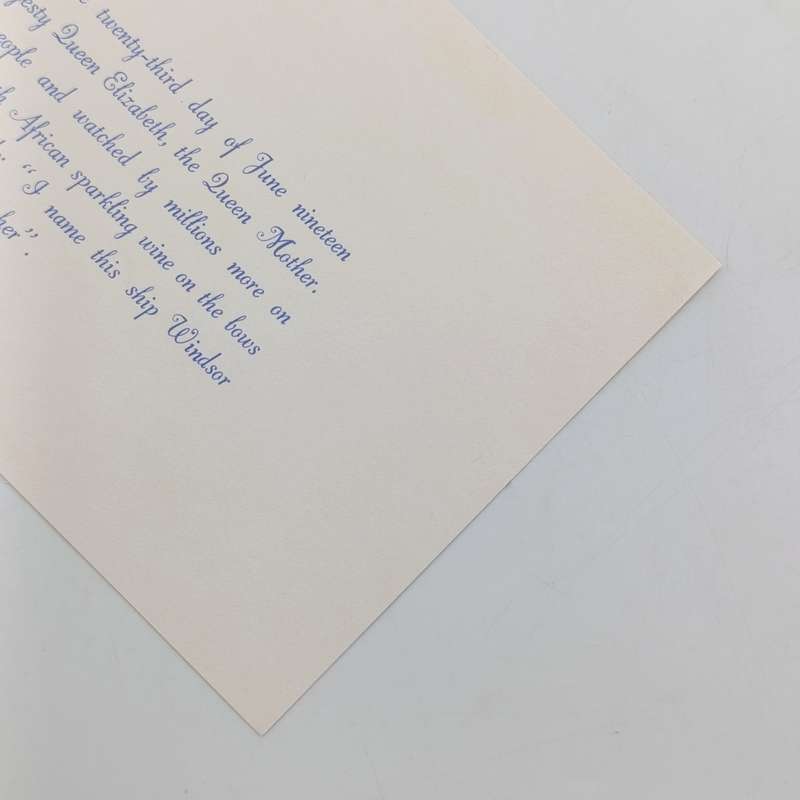 twenty-third day of June nineteen
Queen Elizabeth, the Queen Mother.
and watched by millions more on
African sparkling wine on the bows
“I name this ship Windsor